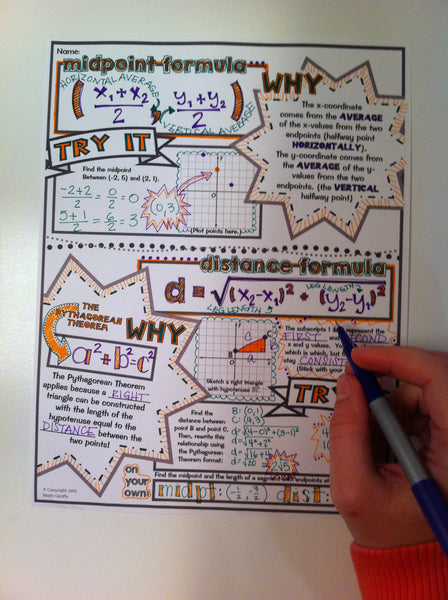 Name:
midpoint formula
HORIZONTAL AVERAGE
( x₁ + x₂ / 2 , y₁ + y₂ / 2 )
VERTICAL AVERAGE
WHY
The x-coordinate
comes from the AVERAGE
of the x-values from the two
endpoints (halfway point
HORIZONTALLY).
The y-coordinate comes
from the AVERAGE of the y-
values from the two
endpoints. (the VERTICAL
halfway point)
TRY IT
Find the midpoint
Between (-2, 5) and (2, 1).
-2+2 / 2 = 0/2 = 0
5+1 / 2 = 6/2 = 3
(0,3)
y
0
(Plot points here.)
distance formula
d = √(x₂-x₁)² + (y₂-y₁)²
LEG LENGTH
LEG LENGTH
THE
PYTHAGOREAN
THEOREM
WHY
a²+b²=c²
The Pythagorean Theorem
applies because a RIGHT
triangle can be constructed
with the length of the
hypotenuse equal to the
DISTANCE between the
two points!
C
B
Sketch a right triangle
with hypotenuse BC.
The subscripts 1 & represent the
FIRST and SECOND
x and y values. Yo
which is which, but
stay CONSIST
(Stick with your
TRY
Find the
distance between
point B and point C.
Then, rewrite this
relationship using
the Pythagorean
Theorem format:
B: (0,1)
C: (4,3)
d=√(4-0)²+(3-1)²
d=√4²+2²
d=√16+4
d=√20 = 2√5
on
your
own:
Find the midpoint and the length of a segment with endpoints at
midpt: (-1/2, -3/2) dist:
© Copyright 2015
Math Giraffe